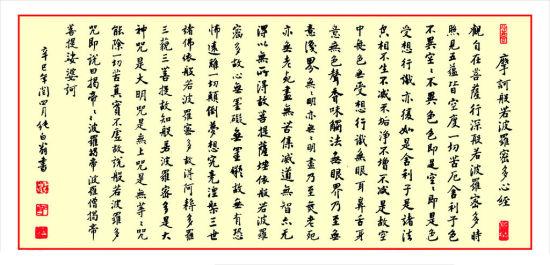 摩訶般若波羅蜜多心經
觀自在菩薩行深般若波羅蜜多時
照見五蘊皆空度一切苦厄舍利子色
不異空〻不異色色即是空〻即是色
受想行識亦復如是舍利子是諸法
空相不生不滅不垢不淨不增不減是故空
中無色無受想行識無眼耳鼻舌身
意無色聲香味觸法無眼界乃至無
意識界無〻明亦無〻明盡乃至無老死
亦無老死盡無苦集滅道無智亦無
得以無所得故菩提薩埵依般若波羅
蜜多故心無罣礙無罣礙故無有恐
怖遠離一切顛倒夢想究竟涅槃三世
諸佛依般若波羅蜜多故得阿耨多羅
三藐三菩提故知般若波羅蜜多是大
神咒是大明咒是無上咒是無等〻咒
能除一切苦真實不虛故說般若波羅蜜多
咒即說咒曰揭帝〻波羅揭帝波羅僧揭帝
菩提娑婆訶
辛巳年閏四月書